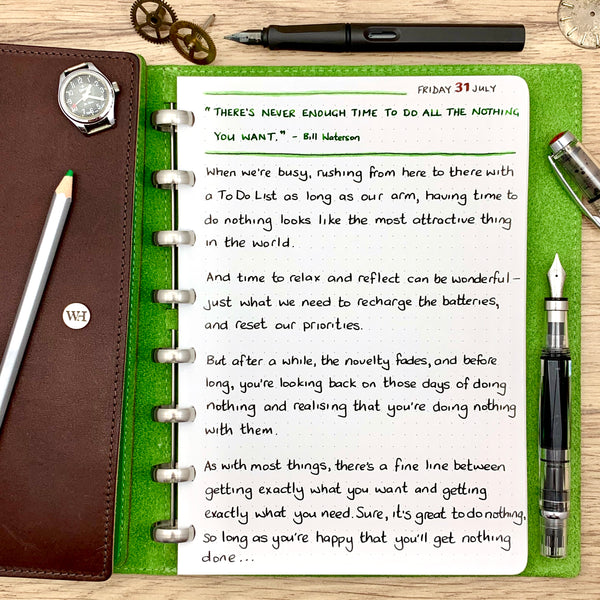 FRIDAY 31 JULY
"THERE'S NEVER ENOUGH TIME TO DO ALL THE NOTHING
YOU WANT." - Bill Waterson
When we're busy, rushing from here to there with
a To Do List as long as our arm, having time to
do nothing looks like the most attractive thing
in the world.
And time to relax and reflect can be wonderful -
just what we need to recharge the batteries,
and reset our priorities.
But after a while, the novelty fades, and before
long, you're looking back on those days of doing
nothing and realising that you're doing nothing
with them.
As with most things, there's a fine line between
getting exactly what you want and getting
exactly what you need. Sure, it's great to do nothing,
so long as you're happy that you'll get nothing
done...
WH